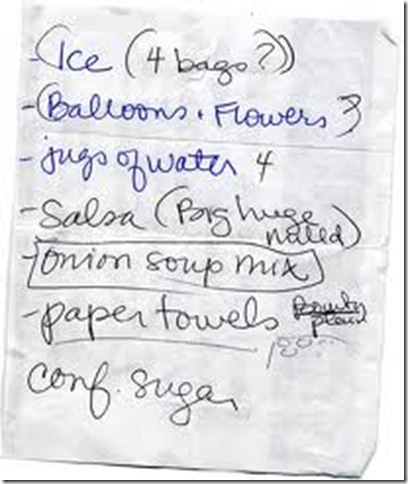 - (Ice (4 bags?))
- (Balloons + Flowers )
- jugs of water 4
- Salsa (Big huge
- onion soup mix
- paper towels Bounty
plain
conf. sugar